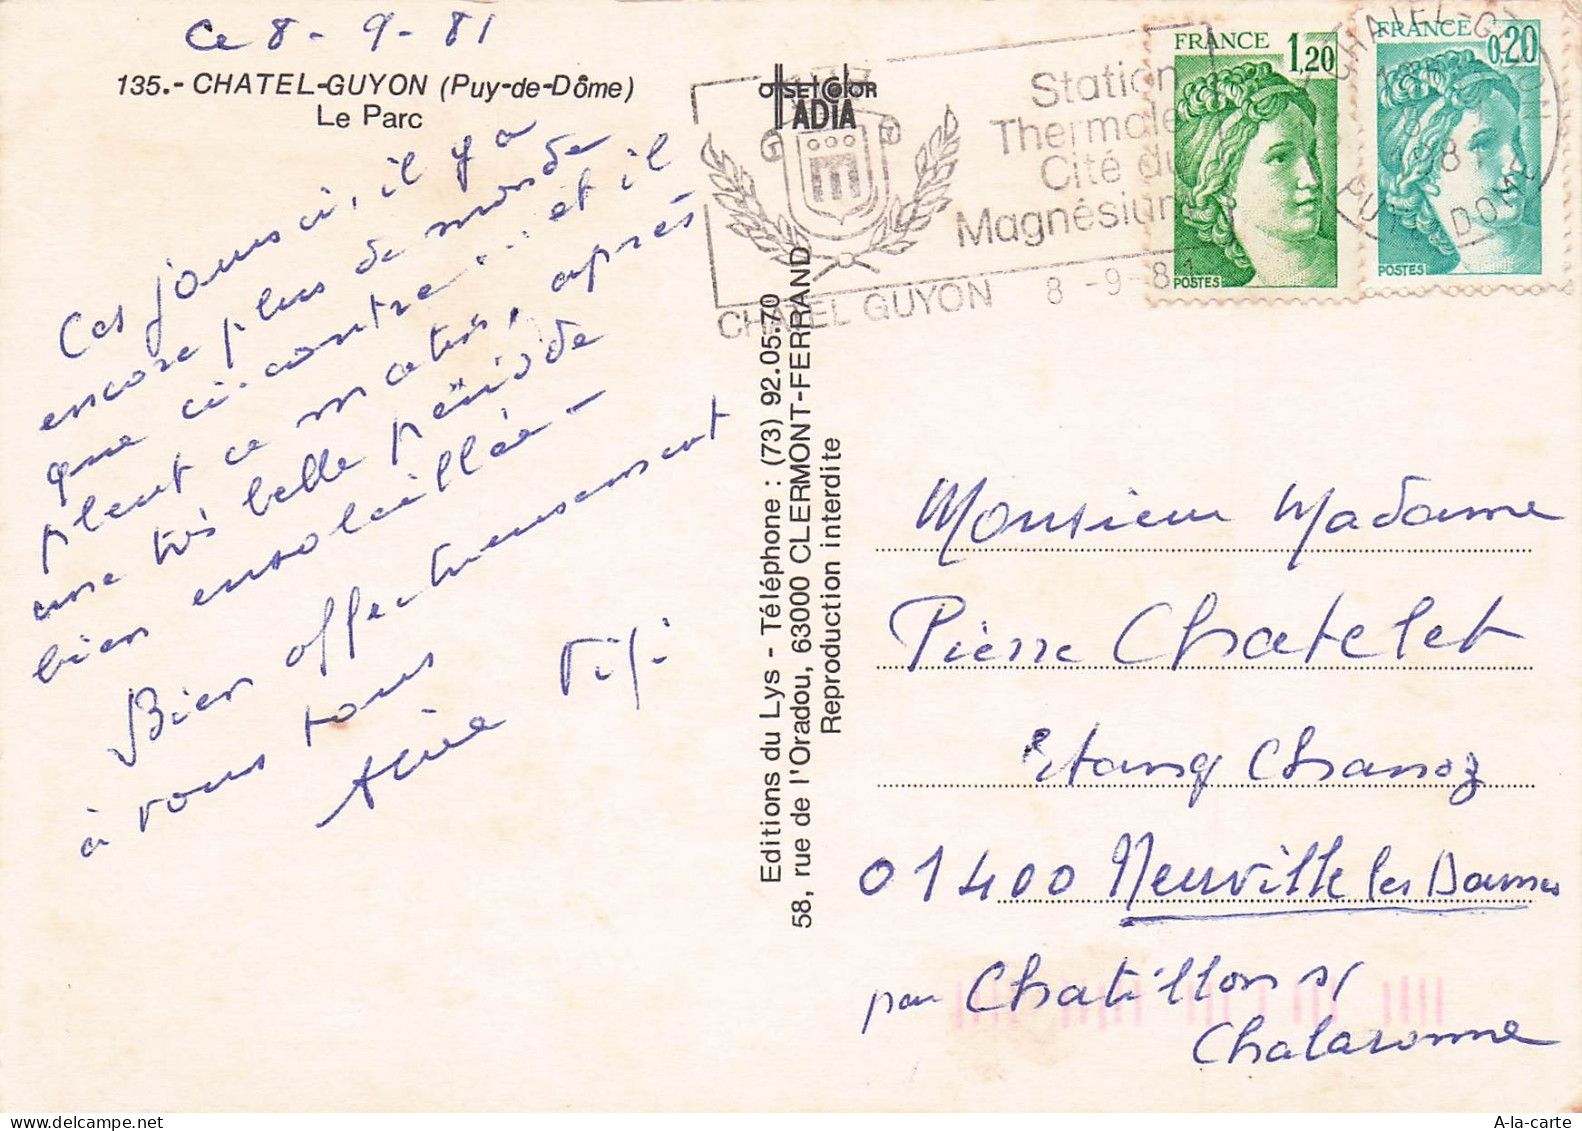 Ce 8 - 9 - 81
135.- CHATEL-GUYON (Puy-de-Dôme)
Le Parc
Ces jours ci, il y a
encore plus de monde
que ci-contre... et il
pleut ce matin, après
une très belle période
bien ensoleillée -
Bien affectueusement
à vous tous
Fifi
OFFSETCOLOR
ADIA
Editions du Lys - Téléphone : (73) 92.05.70
58, rue de l'Oradou, 63000 CLERMONT-FERRAND
Reproduction interdite
Station
Thermale
Cité du
Magnésium
CHATEL GUYON 8 - 9 - 81
FRANCE 1,20
POSTES
FRANCE 0,20
POSTES
CHATEL-GUYON
PUY DE DOME
Monsieur Madame
Pierre Chatelet
Etang Chanoz
01400 Neuville les Dames
par Chatillon s/
Chalaronne
A-la-carte